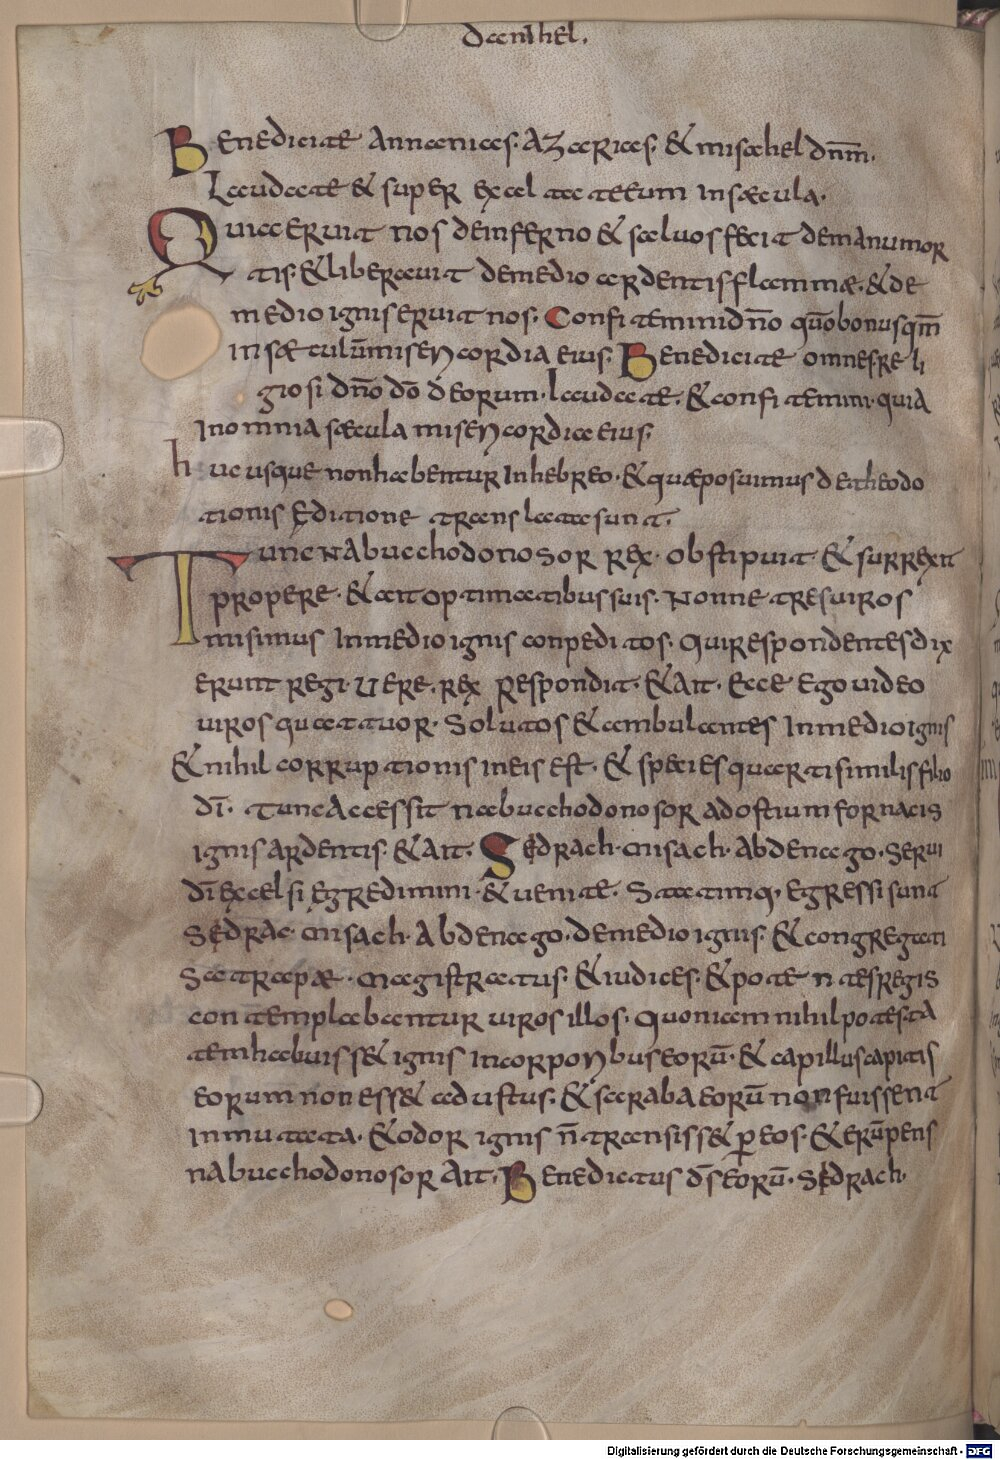 danihel.
Benedicite Annanias. Azarias. & misahel dnm̄.
Laudate & super exceltateeum insæcula.
Quiaeruit nos deinferno & saluosfecit demanumor
tis. & liberauit demedio ardentisflammæ. & de
medio igniseruit nos. Confiteminidn̄o qūobonusqm̄
insæculūmisericordia eius. Benedicite omnesreli
giosi dn̄o dō deorum. laudate. & confitemini quia
Inomnia sæcula misericordia eius.
hucusque nonhabentur Inhebreo. & quæposuimus detheodo
tionis Editione translatasunt.
TuncNabucchodonosor rex. obstipuit & surrexit
propere. & aitoptimatibussuis. Nonne tresuiros
misimus Inmedioignis conpeditos. Quirespondentesdix
erunt regi. Uere. rex Respondit. & Ait. Ecce Ego uideo
uirosquattuor. Solutos & ambulantes Inmedioignis
& nihil corruptionis ineis est. & speciesquartisimilisfilio
dī. tuncAccessit nabucchodonosor adostiumfornacis
ignisardentis. & Ait. Sedrach. misach. Abdenago. Serui
dīexcelsi Egredimini & uenite. Statimq. egressisunt
Sedrac. misach. Abdenago. demedioignis. & congregati
Satrapæ. Magistratus. & iudices. & potentesregis
contemplabantur uirosillos. Quoniamnihilpotesta
temhabuiss& ignis Incorporibuseorū. & capilluscapitis
eorumnoness& adustus. & sarabaeorū nonfuissent
inmutata. & odor ignis n̄ transiss& p̄eos. & erūpens
nabucchodonosor Ait. Benedictus dn̄seorū. sedrach.
Digitalisierung gefördert durch die Deutsche Forschungsgemeinschaft - DFG